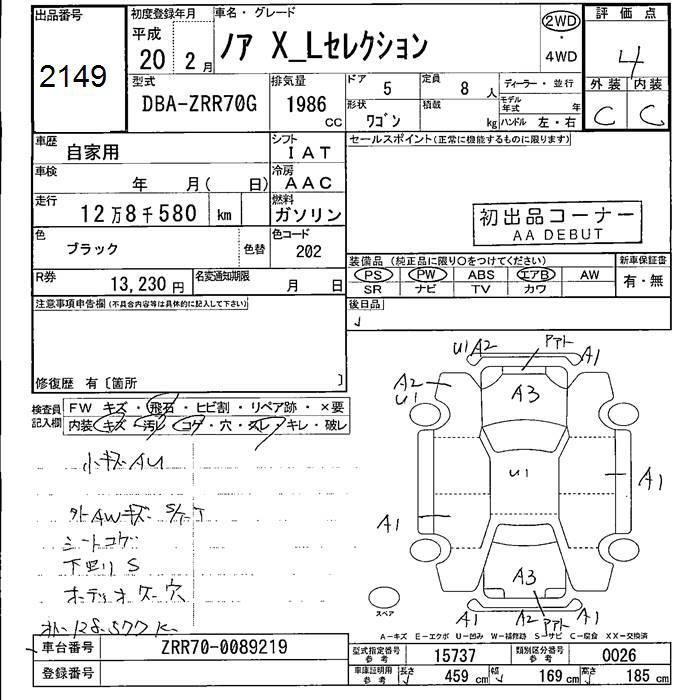 出品番号
2149
初度登録年月
平成
20 2月
車名・グレード
ノア X_Lセレクション
2WD
・
4WD
評価点
4
外装 内装
C C
型式
DBA-ZRR70G
排気量
1986
CC
ドア 5
定員 8 人
ディーラー・並行
形状 ワゴン
積載 kg
モデル年式 年
ハンドル 左・右
車歴
自家用
シフト
IAT
車検
年 月( 日)
冷房
AAC
走行
12万8千580 km
燃料
ガソリン
色
ブラック
色替
色コード
202
R券
13,230 円
名変通知期限
月 日
セールスポイント(正常に機能するものに限ります)
初出品コーナー
AA DEBUT
装備品 (純正品に限り○をつけてください)
新車保証書
PS PW ABS エアB AW
SR ナビ TV カワ
有・無
後日品
注意事項申告欄(不具合内容等は具体的に記入して下さい)
修復歴 有〔箇所 〕
検査員
記入欄
FW キズ・飛石・ヒビ割・リペア跡・×要
内装 キズ・汚レ・コゲ・穴・スレ・キレ・破レ
小キズAU
外AWキズ
シートコゲ
下回りS
オーディオレス穴
U1 A2 A1
A2
U1
A3
U1
A1
A1
A3
A1 A2 A1
スペア
A-キズ E-エクボ U-凹み W-補修跡 S-サビ C-腐食 XX-交換済
車台番号
ZRR70-0089219
登録番号
型式指定番号
参考
15737
類別区分番号
参考
0026
車庫証明用
参考
長さ 459 cm
幅 169 cm
高さ 185 cm